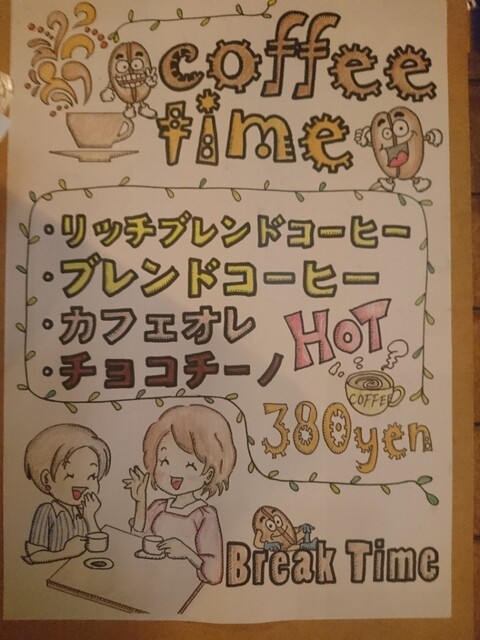 coffee
time
・リッチブレンドコーヒー
・ブレンドコーヒー
・カフェオレ
・チョコチーノ
HOT
COFFEE
380yen
Break Time